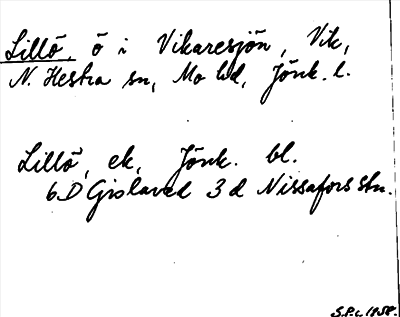 Lillö, ö i Vikaresjön, Vik,
N. Hestra sn, Mo hd, Jönk. l.
Lillö, ek, Jönk. bl.
6 D Gislaved 3 d Nissafors stn.
S.P.c. 1958.